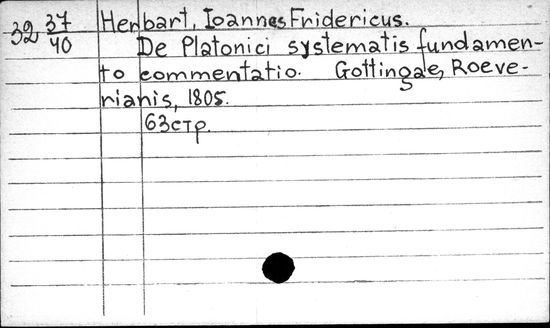 32 37/40 Herbart, Ioannes Fridericus.
De Platonici systematis fundamen-
to commentatio. Gottingae, Roeve-
rianis, 1805.
63стр.